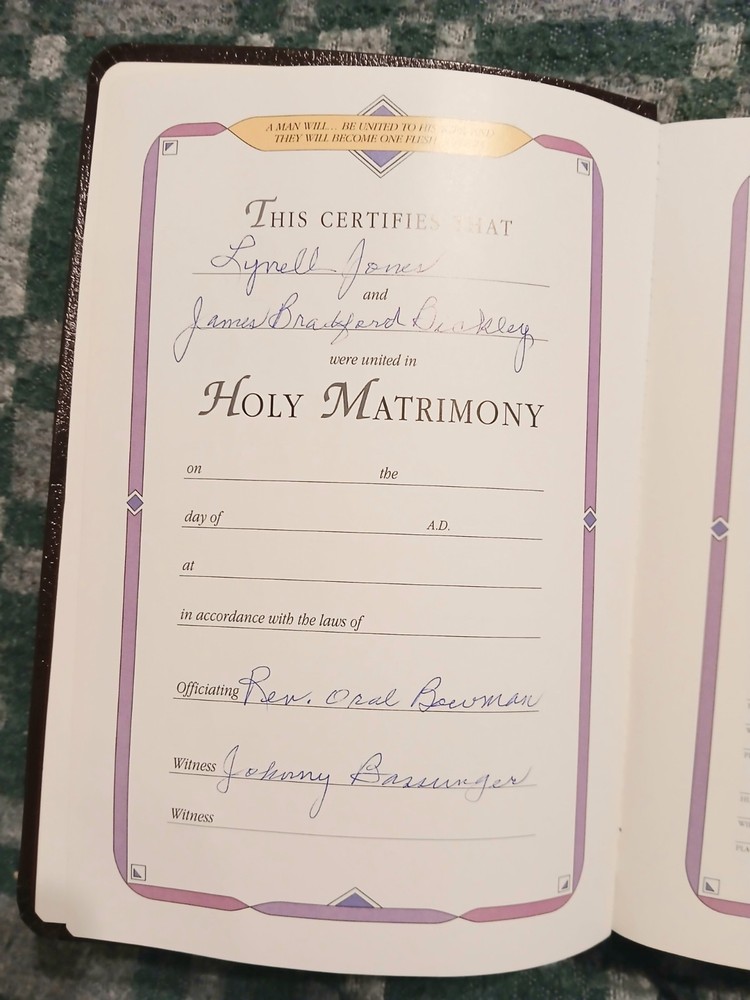 A MAN WILL... BE UNITED TO HIS WIFE, AND
THEY WILL BECOME ONE FLESH
THIS CERTIFIES THAT
Lynell Jones
and
James Bradford Binkley
were united in
HOLY MATRIMONY
on the
day of A.D.
at
in accordance with the laws of
Officiating Rev. Oral Bowman
Witness Johnny Bassunger
Witness